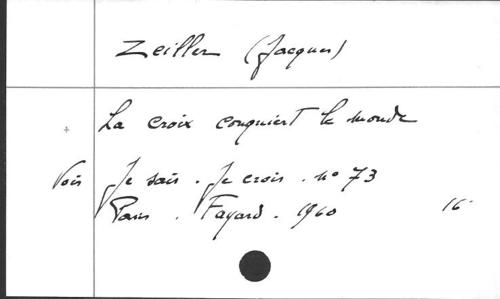 Zeiller (Jacques)
La croix conquiert le monde
Voir Je sais. Je crois. n° 73
Paris. Fayard. 1960 16